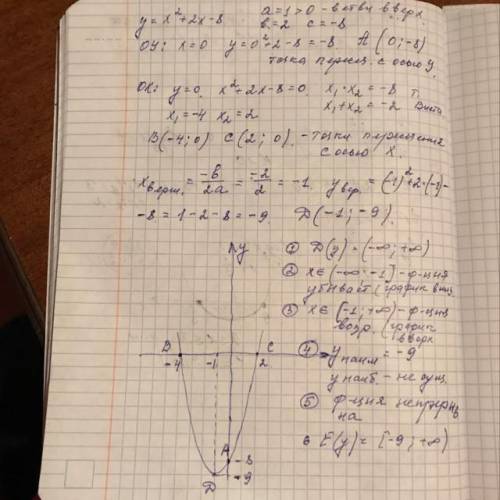 y = x²+2x-8
a=1>0 - ветви вверх.
в=2 с=-8
ОУ: x=0 y=0²+2-8=-8. A(0;-8)
точка перес. с осью У.
OX: y=0. x²+2x-8=0. x₁·x₂=-8 Т.
x₁=-4 x₂=2 x₁+x₂=-2 Виета
B(-4;0) C(2;0). - точки пересечения
с осью X.
x верш. = -b/2a = -2/2 = -1. y вер. = (-1)²+2·(-1)-
-8=1-2-8=-9. D(-1;-9).
y
① D(y)=(-∞;+∞)
② x∈(-∞;-1] - ф-ция
убывает (график вниз
③ x∈[-1;+∞) - ф-ция
возр. (график
вверх
④ y наим = -9
y наиб. - не сущ.
⑤ ф-ция непрерыв
на
6 E(y)=[-9;+∞)
B C
-4 -1 2
A
-8
-9
D